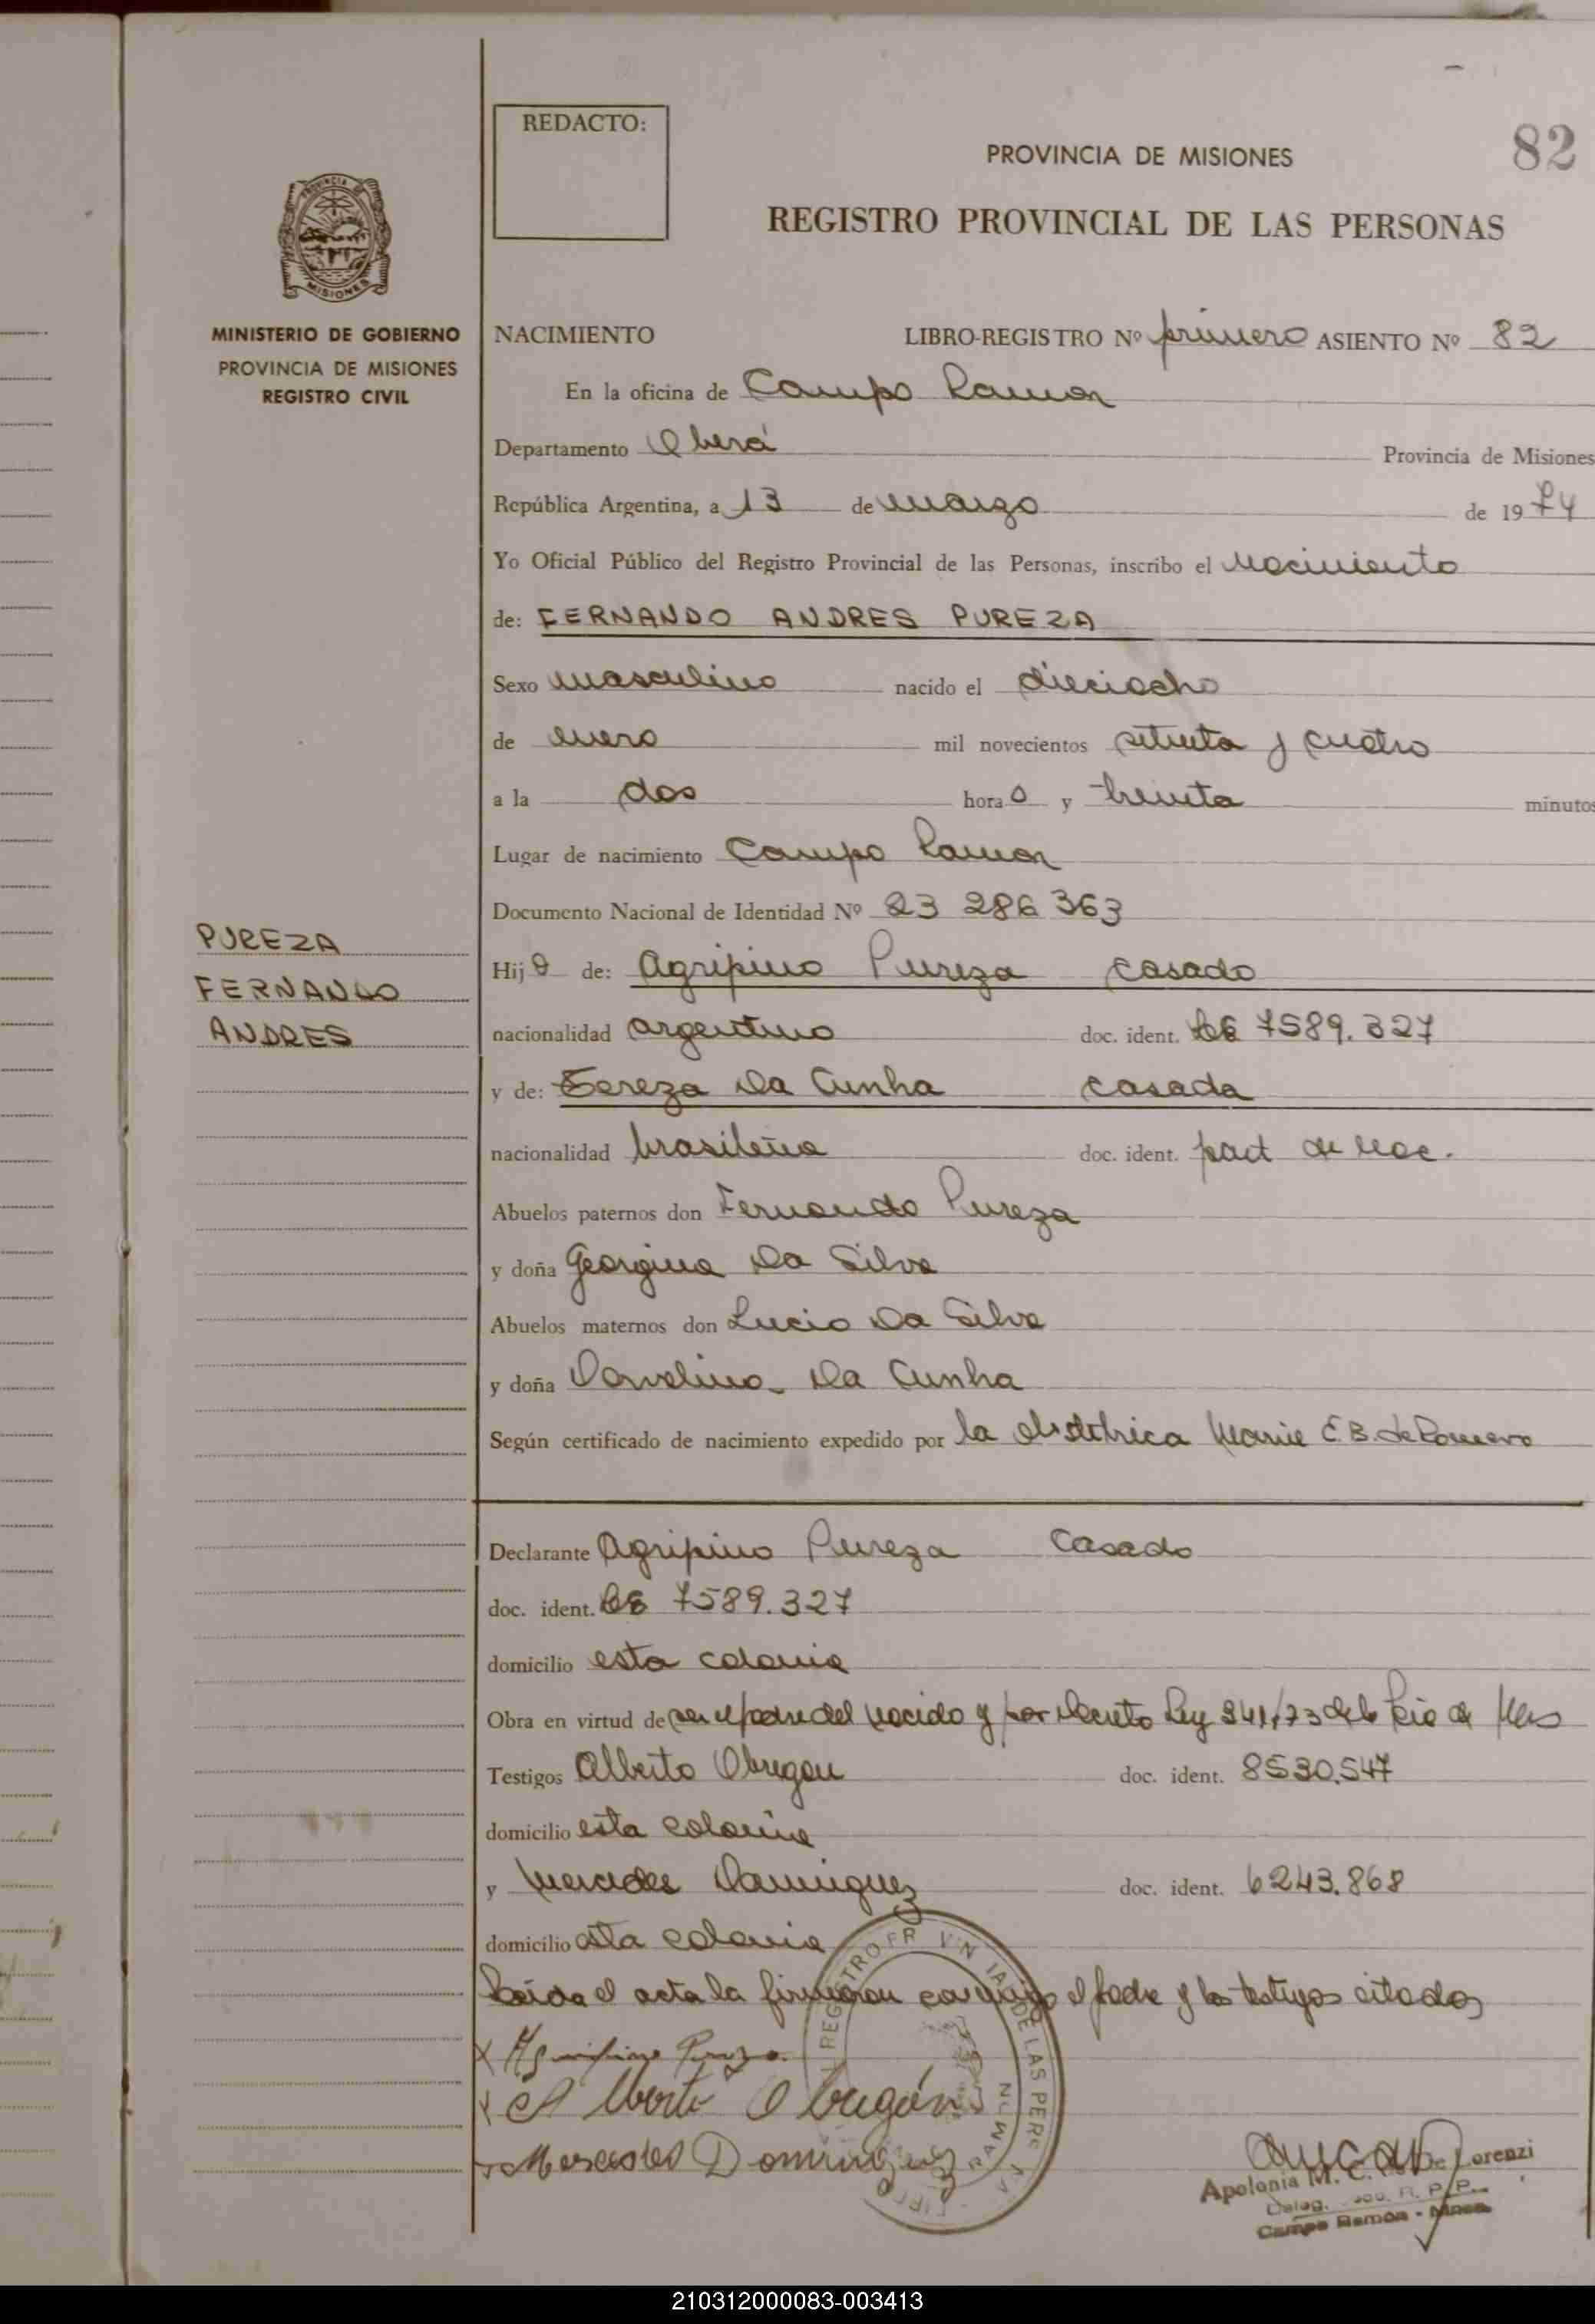 REDACTO:
PROVINCIA DE MISIONES
82
REGISTRO PROVINCIAL DE LAS PERSONAS
PROVINCIA DE
MISIONES
MINISTERIO DE GOBIERNO
PROVINCIA DE MISIONES
REGISTRO CIVIL
NACIMIENTO LIBRO-REGISTRO Nº primero ASIENTO Nº 82
En la oficina de Campo Ramon
Departamento Oberá Provincia de Misiones
República Argentina, a 13 de marzo de 1974
Yo Oficial Público del Registro Provincial de las Personas, inscribo el Nacimiento
de: FERNANDO ANDRES PUREZA
Sexo masculino nacido el dieciocho
de enero mil novecientos setenta y cuatro
a la dos hora s y treinta minutos
Lugar de nacimiento Campo Ramon
Documento Nacional de Identidad Nº 23 286 363
PUREZA
FERNANDO
ANDRES
Hijo de: Agripino Pureza casado
nacionalidad argentino doc. ident. 7589.327
y de: Tereza Da Cunha casada
nacionalidad brasileña doc. ident. part de nac.
Abuelos paternos don Fernando Pureza
y doña Georgina Da Silva
Abuelos maternos don Lucio Da Silva
y doña Da Cunha
Según certificado de nacimiento expedido por la obstetrica Maria E.B. de Romero
Declarante Agripino Pureza Casado
doc. ident. 7589.327
domicilio esta colonia
Obra en virtud de ser el padre del nacido y por decreto Ley 341/73 de la
Testigos Alberto Obregon doc. ident. 8530.547
domicilio esta colonia
y Mercedes Dominguez doc. ident. 6243.868
domicilio esta colonia
Leida el acta la firmaron conmigo el padre y los testigos citados
X Agripino Pureza
X Alberto Obregón
Mercedes Dominguez
REGISTRO DE LAS PERS
Apolonia M. C. De Lorenzi
Deleg. R. P. P.
Campo Ramon - Mnes
210312000083-003413